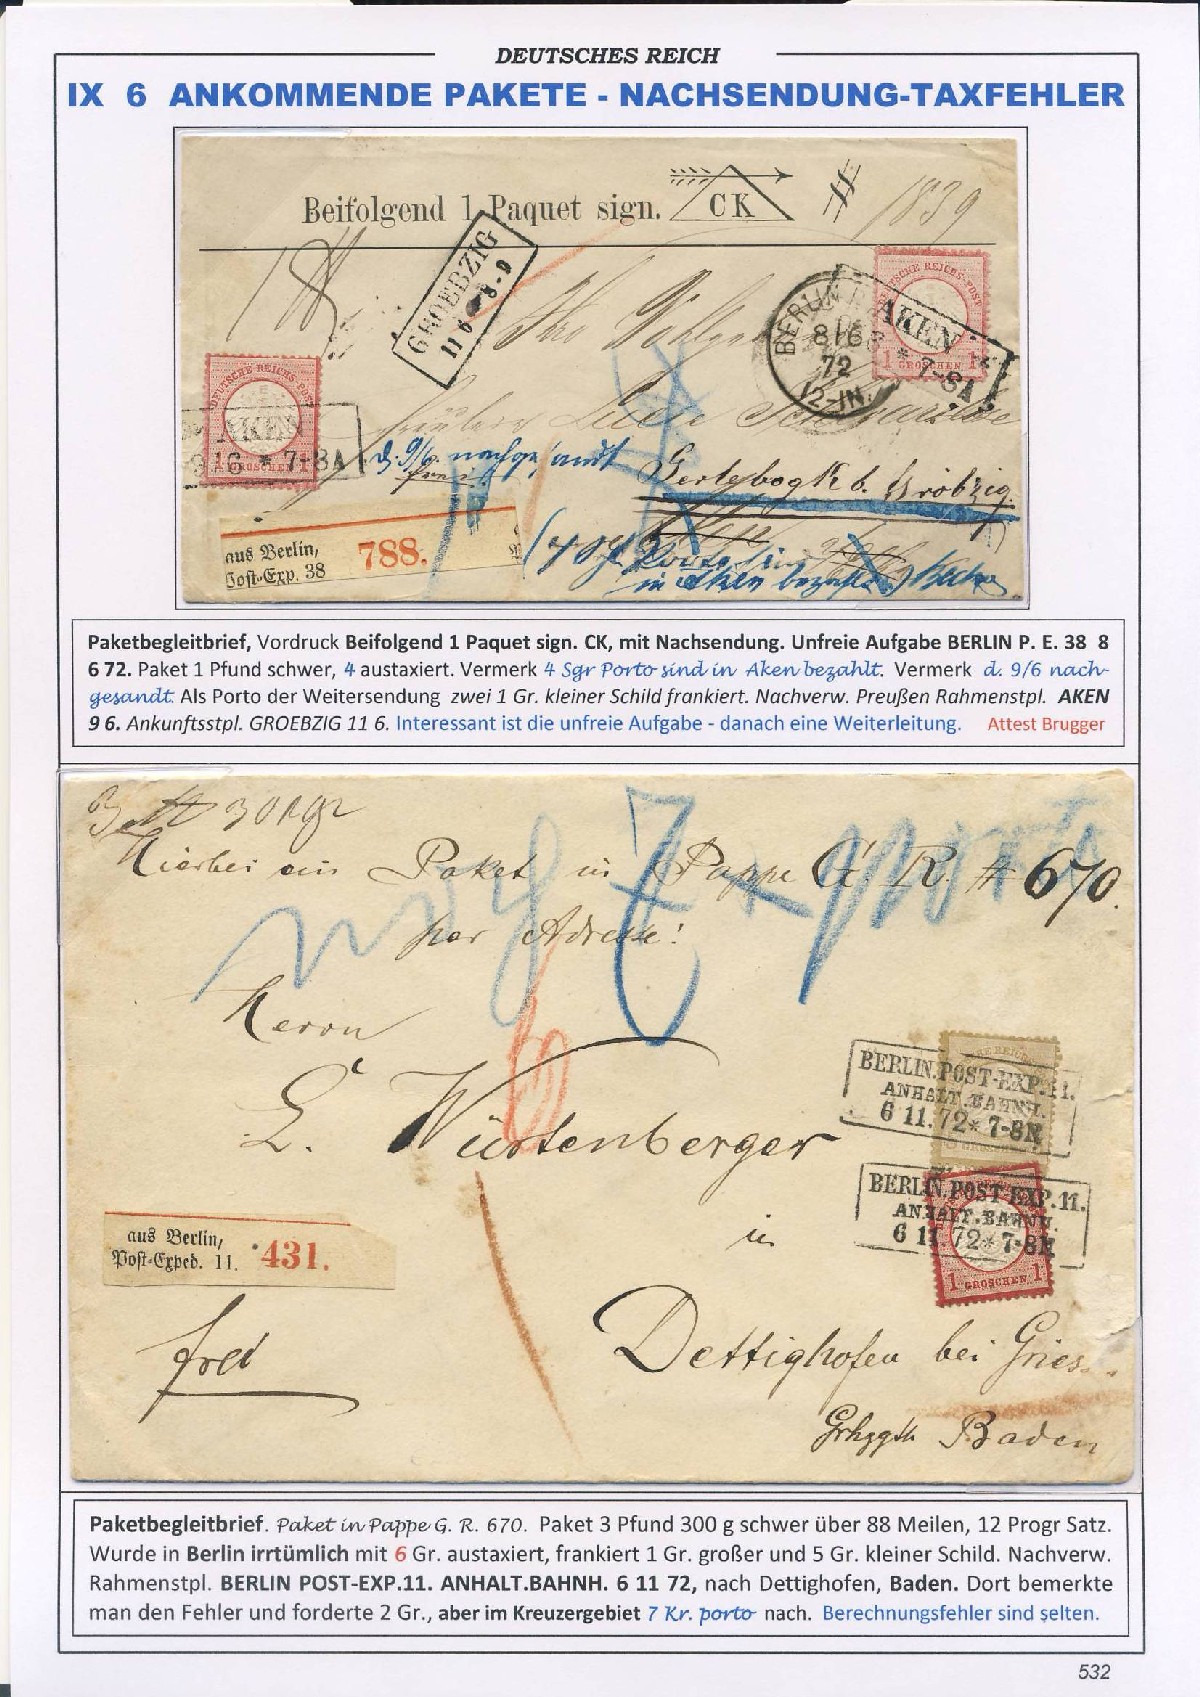 DEUTSCHES REICH
IX 6 ANKOMMENDE PAKETE - NACHSENDUNG-TAXFEHLER
Beifolgend 1 Paquet sign. CK # 1839
GROEBZIG
11 6 8-9
BERLIN
8 6
72
12-1N.
DEUTSCHE REICHS-POST
AKEN
* 7-8A
1 GROSCHEN
DEUTSCHE REICHS-POST
AKEN
9 6 * 7-8A
1 GROSCHEN 1
d. 9/6 nachgesandt
Gerlebogk b. Gröbzig
aus Berlin,
Post-Exp. 38 788.
in Aken bezahlt
Paketbegleitbrief, Vordruck Beifolgend 1 Paquet sign. CK, mit Nachsendung. Unfreie Aufgabe BERLIN P. E. 38 8
6 72. Paket 1 Pfund schwer, 4 austaxiert. Vermerk 4 Sgr Porto sind in Aken bezahlt. Vermerk d. 9/6 nach-
gesandt. Als Porto der Weitersendung zwei 1 Gr. kleiner Schild frankiert. Nachverw. Preußen Rahmenstpl. AKEN
9 6. Ankunftsstpl. GROEBZIG 11 6. Interessant ist die unfreie Aufgabe - danach eine Weiterleitung. Attest Brugger
Hierbei ein Paket in Pappe G. R. # 670.
per Adresse!
7 x porto
Herrn
6
L. Würtenberger
BERLIN.POST-EXP.11.
ANHALT.BAHNH.
6 11.72 * 7-8N
BERLIN.POST-EXP.11.
ANHALT.BAHNH.
6 11.72 * 7-8N
1 GROSCHEN 1
in
aus Berlin,
Post-Exped. 11. 431.
frei
Dettighofen bei
Baden
Paketbegleitbrief. Paket in Pappe G. R. 670. Paket 3 Pfund 300 g schwer über 88 Meilen, 12 Progr Satz.
Wurde in Berlin irrtümlich mit 6 Gr. austaxiert, frankiert 1 Gr. großer und 5 Gr. kleiner Schild. Nachverw.
Rahmenstpl. BERLIN POST-EXP.11. ANHALT.BAHNH. 6 11 72, nach Dettighofen, Baden. Dort bemerkte
man den Fehler und forderte 2 Gr., aber im Kreuzergebiet 7 Kr. porto nach. Berechnungsfehler sind selten.
532